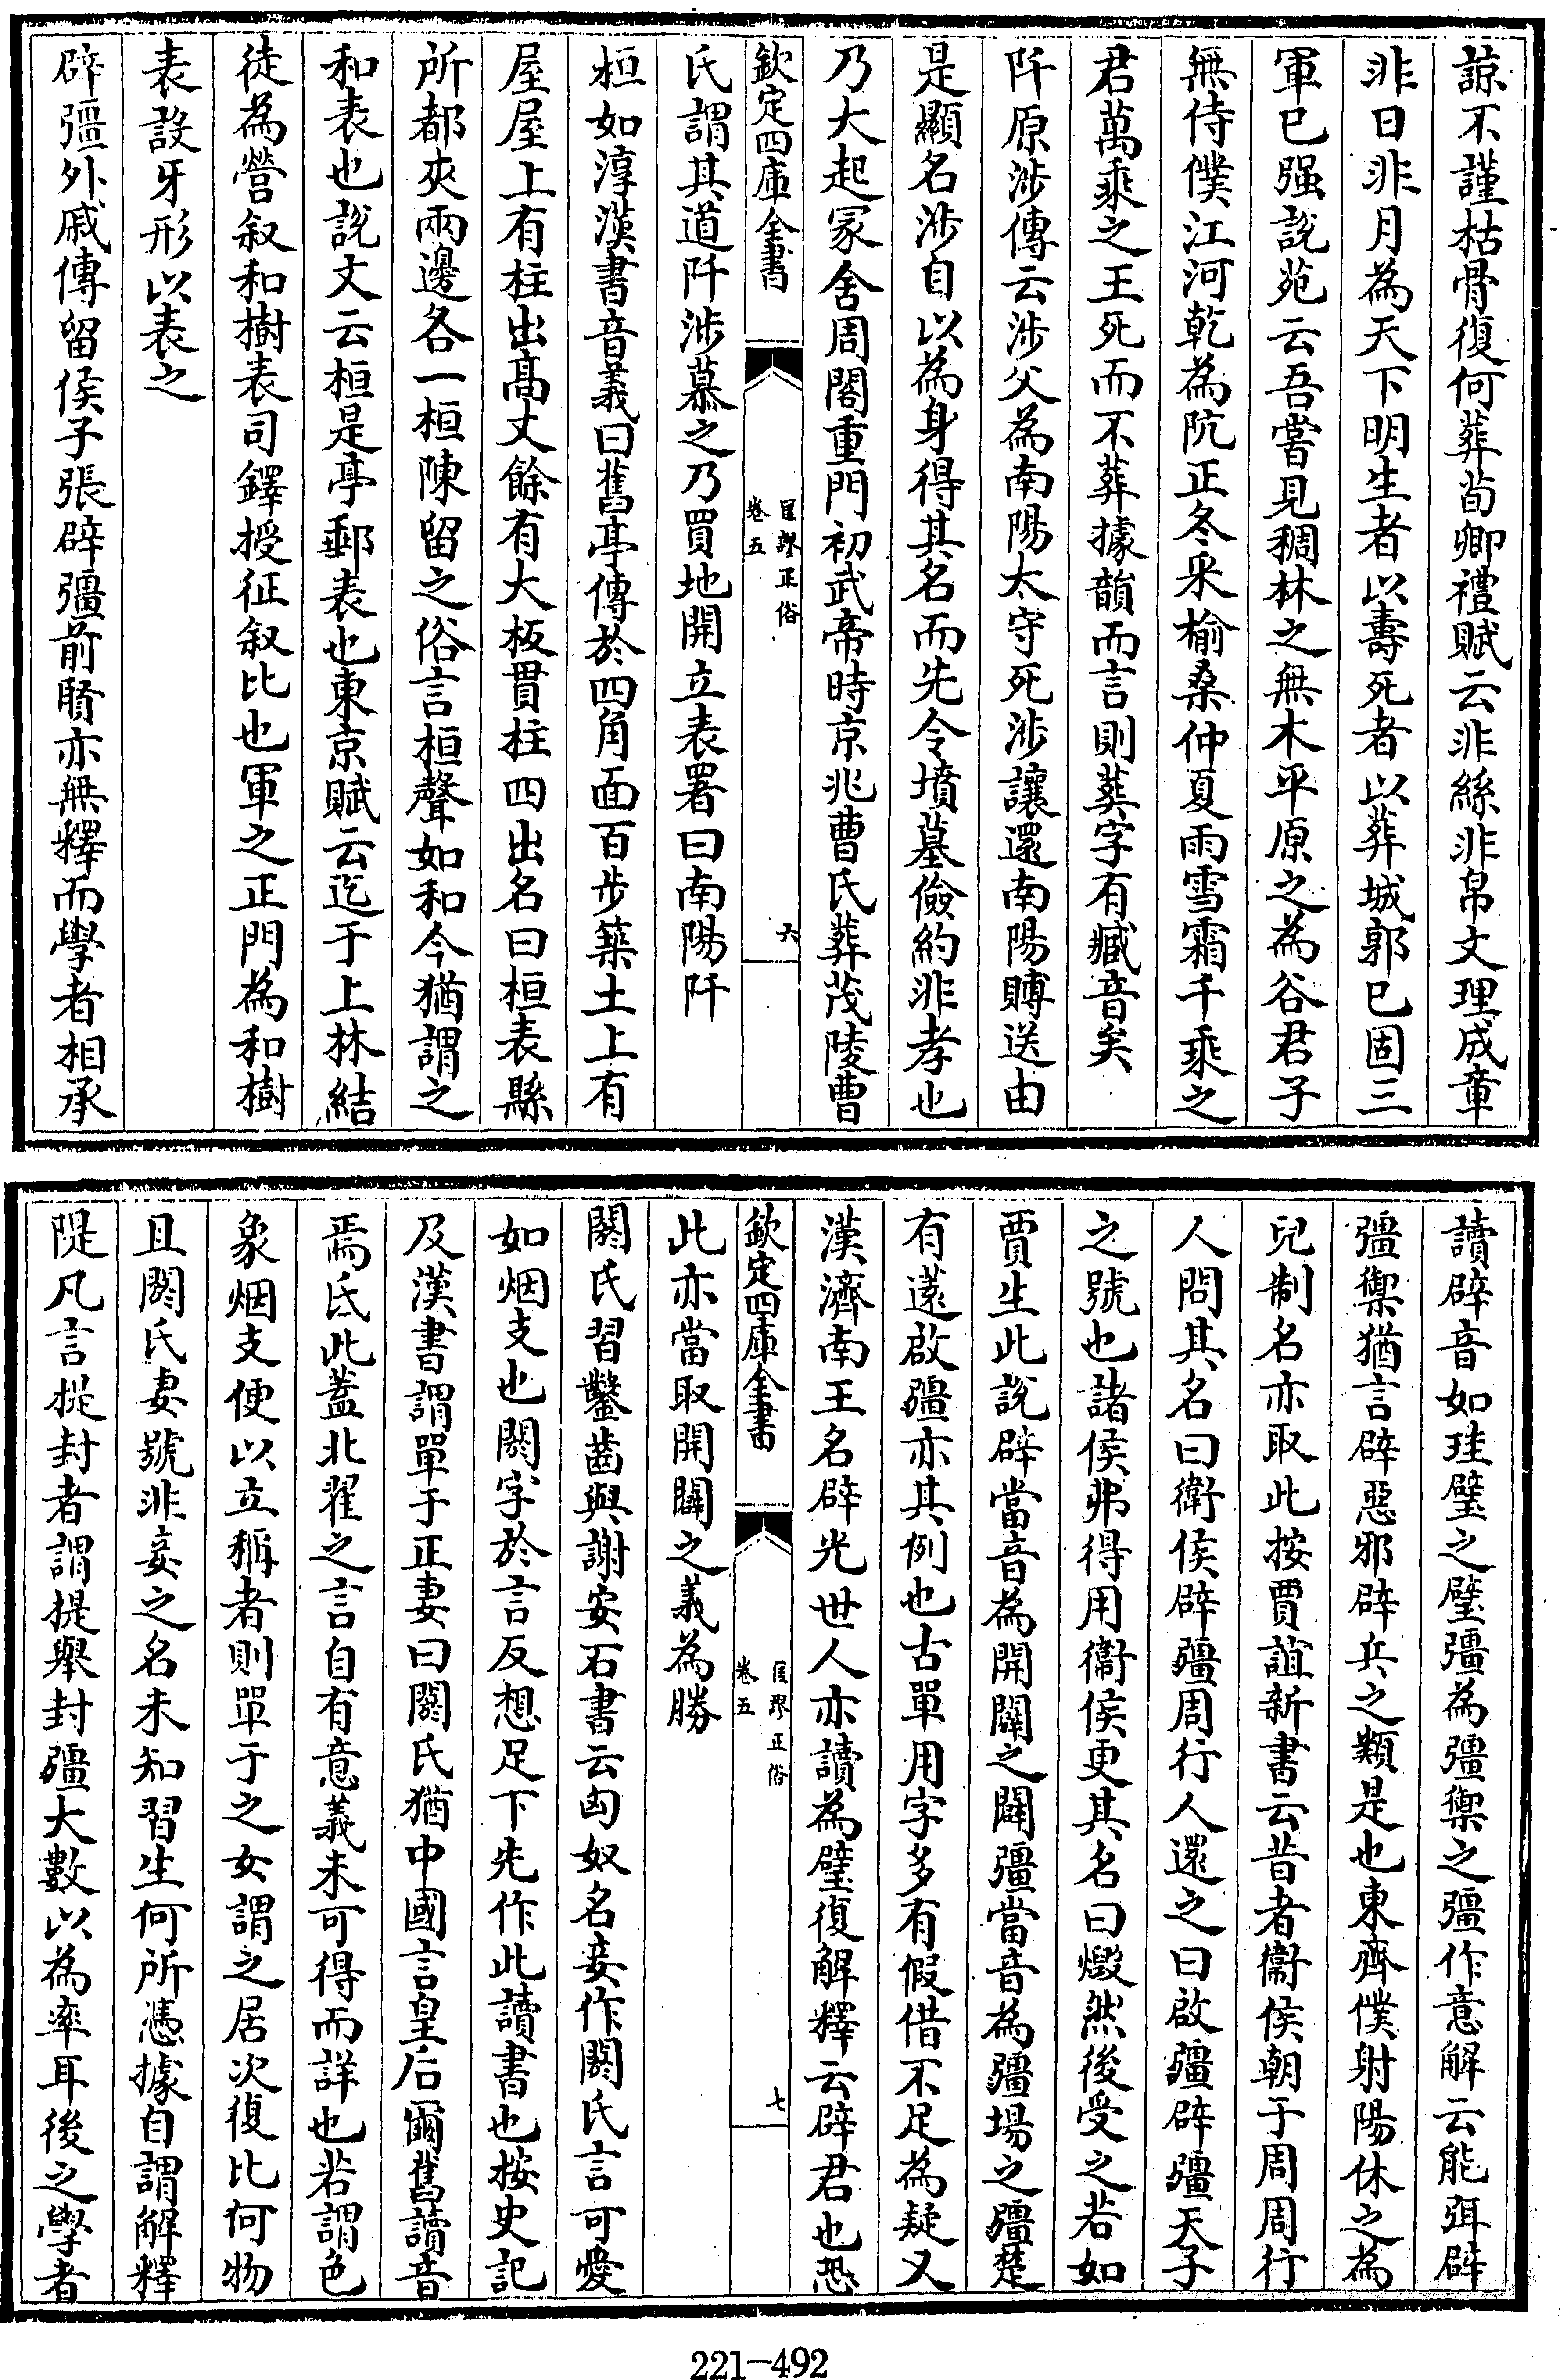 諒不謹枯骨復何葬荀卿禮賦云非絲非帛文理成章
非日非月為天下明生者以壽死者以葬城郭已固三
軍已强說苑云吾嘗見稠林之無木平原之為谷君子
無侍僕江河乾為阬正冬采榆桑仲夏雨雪霜千乘之
君萬乘之王死而不葬據韻而言則葬字有臧音矣
阡原涉傳云涉父為南陽太守死涉讓還南陽賻送由
是顯名涉自以為身得其名而先令墳墓儉約非孝也
乃大起冢舍周閣重門初武帝時京兆曹氏葬茂陵曹
欽定四庫全書
匡謬正俗
卷五
六
氏謂其道阡涉慕之乃買地開立表署曰南陽阡
桓如淳漢書音義曰舊亭傳於四角面百步築土上有
屋屋上有柱出高丈餘有大板貫柱四出名曰桓表縣
所都夾兩邊各一桓陳留之俗言桓聲如和今猶謂之
和表也說文云桓是亭郵表也東京賦云迄于上林結
徒為營叙和樹表司鐸授征叙比也軍之正門為和樹
表設牙形以表之
辟彊外戚傳留侯子張辟彊前賢亦無釋而學者相承
讀辟音如珪璧之璧彊為彊禦之彊作意解云能弭辟
彊禦猶言辟惡邪辟兵之類是也東齊僕射陽休之為
兒制名亦取此按賈誼新書云昔者衞侯朝于周周行
人問其名曰衞侯辟彊周行人還之曰啟彊辟彊天子
之號也諸侯弗得用衞侯更其名曰燬然後受之若如
賈生此說辟當音為開闢之闢彊當音為疆場之疆楚
有薳啟彊亦其例也古單用字多有假借不足為疑又
漢濟南王名辟光世人亦讀為璧復解釋云辟君也恐
欽定四庫全書
匡謬正俗
卷五
七
此亦當取開闢之義為勝
閼氏習鑿齒與謝安石書云匈奴名妾作閼氏言可愛
如烟支也閼字於言反想足下先作此讀書也按史記
及漢書謂單于正妻曰閼氏猶中國言皇后爾舊讀音
焉氏此蓋北翟之言自有意義未可得而詳也若謂色
象烟支便以立稱者則單于之女謂之居次復比何物
且閼氏妻號非妾之名未知習生何所憑據自謂解釋
隄凡言提封者謂提舉封疆大數以為率耳後之學者
221-492